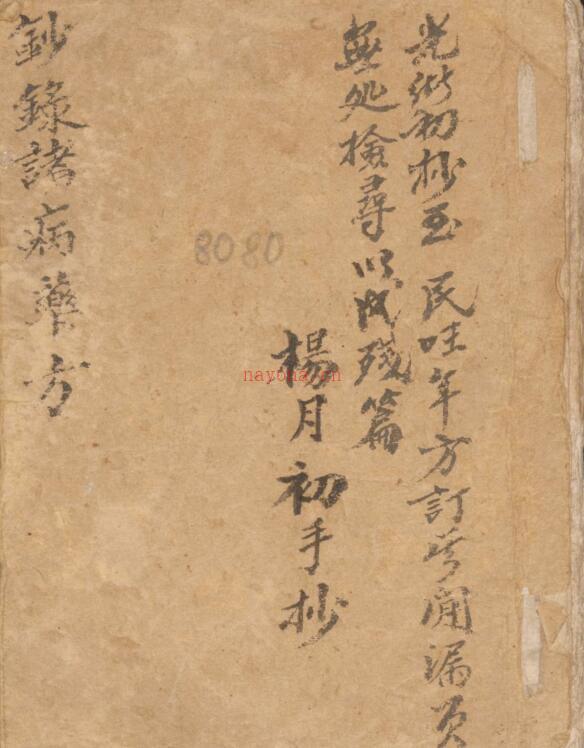 光緒初抄至 民年方訂間漏頁
無処檢尋以成殘篇
楊月初手抄
8080
nayona.cn
鈔錄諸病藥方